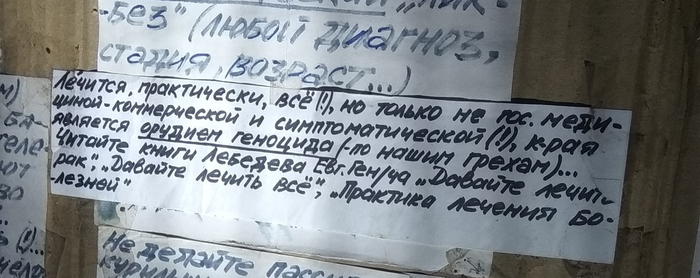 -БЕЗ" (ЛЮБОЙ ДИАГНОЗ,
СТАДИЯ, ВОЗРАСТ...)
Лечится, практически, всё (!), но только не гос. меди-
циной-коммерческой и симптоматической (!), к-рая
является орудием геноцида (-по нашим грехам)...
Читайте книги Лебедева Евг. Ген/ча „Давайте лечить
рак", „Давайте лечить всё", „Практика лечения бо-
-лезней"
НЕ ДЕЛАЙТЕ